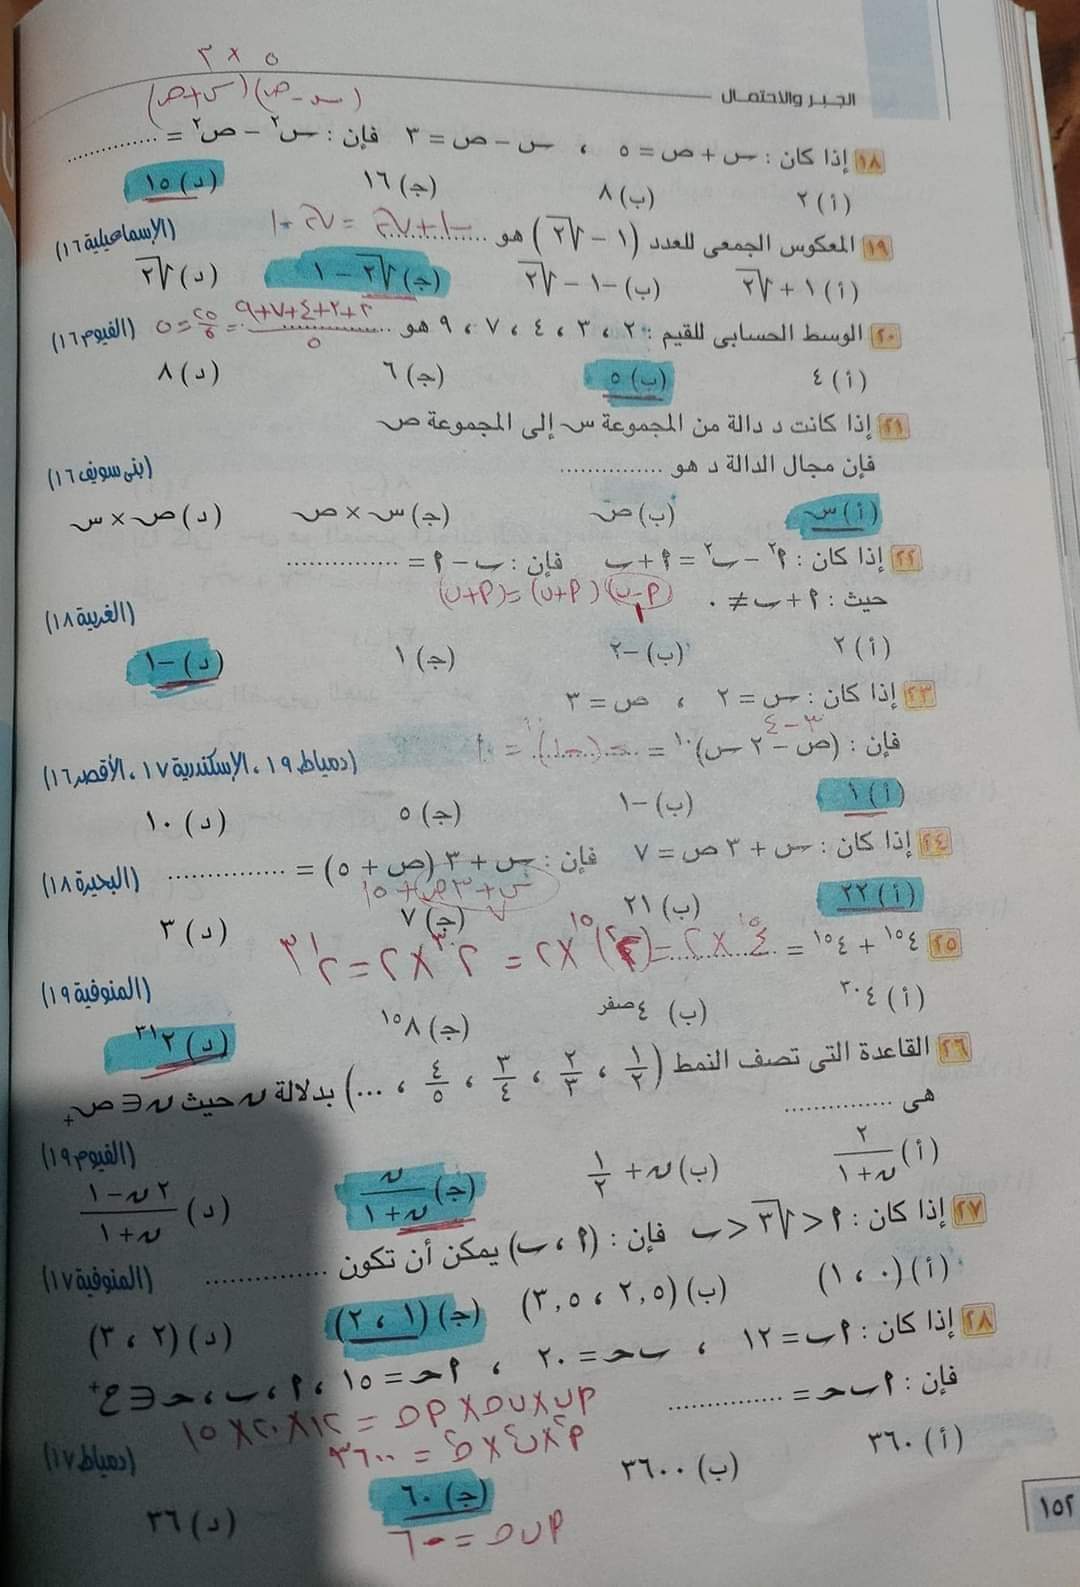 ٣ × ٥
(س - ص)(س + ص)
الجبر والاحتمال
١٨ إذا كان : س + ص = ٥ ، س - ص = ٣ فإن : س٢ - ص٢ = ............
(أ) ٢ (ب) ٨ (ج) ١٦ (د) ١٥
١٩ المعكوس الجمعى للعدد (١ - √٢) هو ............ (الإسماعيلية ١٦)
-١ + √٢ = √٢ - ١
(أ) ١ + √٢ (ب) -١ - √٢ (ج) √٢ - ١ (د) √٢
٢٠ الوسط الحسابى للقيم : ٢ ، ٣ ، ٤ ، ٧ ، ٩ هو ............ (الفيوم ١٦)
٢+٣+٤+٧+٩ / ٥ = ٢٥/٥ = ٥
(أ) ٤ (ب) ٥ (ج) ٦ (د) ٨
٢١ إذا كانت د دالة من المجموعة س إلى المجموعة ص
فإن مجال الدالة د هو ............ (بنى سويف ١٦)
(أ) س (ب) ص (ج) س × ص (د) ص × س
٢٢ إذا كان : ٢٢ - ب٢ = ٢ + ب فإن : ب - ٢ = ............
حيث : ٢ + ب ≠ ٠ (الغربية ١٨)
(٢-ب)(٢+ب) = (٢+ب)
١
(أ) ٢ (ب) -٢ (ج) ١ (د) -١
٢٣ إذا كان : س = ٢ ، ص = ٣
٣ - ٤
فإن : (ص - ٢ س)١٠ = (-١)١٠ = ١ (دمياط ١٩ ، الإسكندرية ١٧ ، الأقصر ١٦)
(أ) ١ (ب) -١ (ج) ٥ (د) ١٠
٢٤ إذا كان : س + ٣ ص = ٧ فإن : س + ٣ (ص + ٥) = ............ (البحيرة ١٨)
س + ٣ص + ١٥
٧
(أ) ٢٢ (ب) ٢١ (ج) ٧ (د) ٣
٢٥ ٤١٥ + ٤١٥ = ............ (المنوفية ١٩)
٤١٥ × ٢ = (٢٢)١٥ × ٢ = ٢٣٠ × ٢ = ٢٣١
(أ) ٤٣٠ (ب) ٤صفر (ج) ٨١٥ (د) ٢٣١
٢٦ القاعدة التى تصف النمط (١/٢ ، ٢/٣ ، ٣/٤ ، ٤/٥ ، ...) بدلالة ن حيث ن ∈ ص+
هى ............ (الفيوم ١٩)
(أ) ٢/ن + ١ (ب) ن + ١/٢ (ج) ن/ن + ١ (د) ٢ ن - ١/ن + ١
٢٧ إذا كان : ٢ < √٣ < ب فإن : (٢ ، ب) يمكن أن تكون ............ (المنوفية ١٧)
(أ) (٠ ، ١) (ب) (٢,٥ ، ٣,٥) (ج) (١ ، ٢) (د) (٢ ، ٣)
٢٨ إذا كان : ٢ب = ١٢ ، ب ح = ٢٠ ، ٢ح = ١٥ ، ٢ ، ب ، ح ∈ ع+
فإن : ٢ ب ح = ............ (دمياط ١٧)
٢ب × ب ح × ٢ح = ١٢ × ٢٠ × ١٥
٢٢ × ب٢ × ح٢ = ٣٦٠٠
(أ) ٣٦٠ (ب) ٣٦٠٠ (ج) ٦٠ (د) ٣٦
٢ ب ح = ٦٠
١٥٢